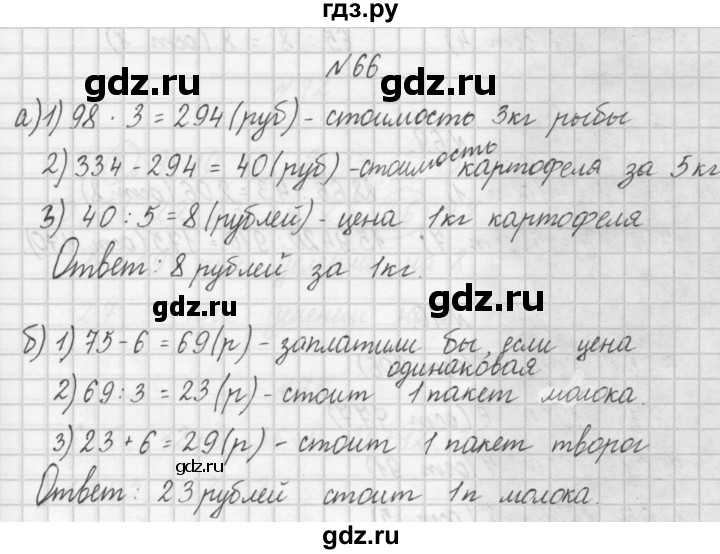 гдз.ру
№66
gdz.ru gdz.ru
а) 1) 98 · 3 = 294 (руб) - стоимость 3кг рыбы
2) 334 - 294 = 40 (руб) - стоимость картофеля за 5кг
3) 40 : 5 = 8 (рублей) - цена 1кг картофеля
Ответ: 8 рублей за 1кг.
gdz.ru gdz.ru
б) 1) 75 - 6 = 69 (р) - заплатили бы, если цена
одинаковая
2) 69 : 3 = 23 (р) - стоит 1 пакет молока.
3) 23 + 6 = 29 (р) - стоит 1 пакет творог
gdz.ru
Ответ: 23 рублей стоит 1п молока.
gdz.ru